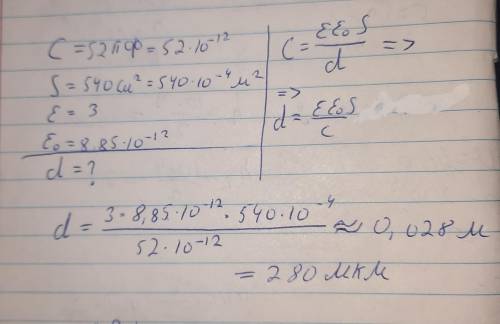 C = 52 пФ = 52·10⁻¹²
S = 540 см² = 540·10⁻⁴ м²
ε = 3
ε₀ = 8,85·10⁻¹²
d = ?
C = εε₀S / d =>
=>
d = εε₀S / c
d = 3·8,85·10⁻¹²·540·10⁻⁴ / 52·10⁻¹² ≈ 0,028 м
= 280 мкм